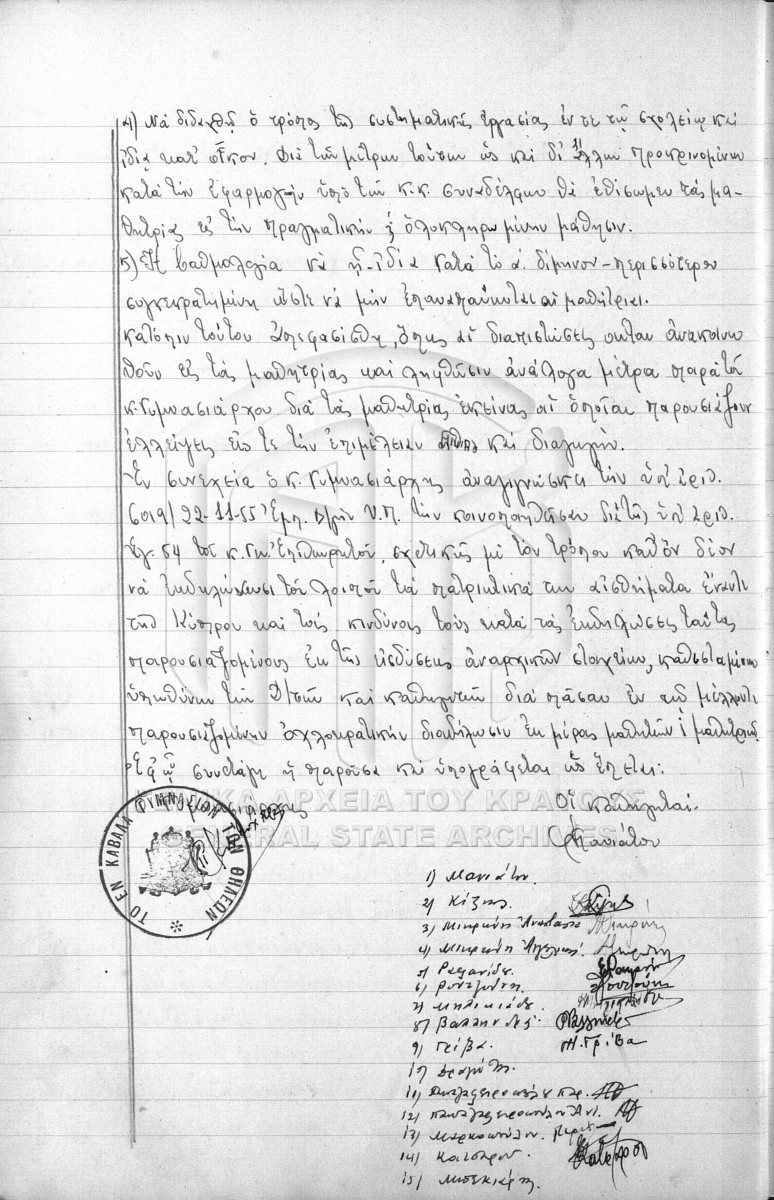 4) Νὰ διδαχθῇ ὁ τρόπος τῆς συστηματικῆς ἐργασίας ἐν τε τῷ σχολείῳ καὶ
ἰδίᾳ κατ' οἶκον. Διὰ τῶν μέτρων τούτων ὡς καὶ δι' ἄλλων προκρινομένων
κατὰ τὴν ἐφαρμογὴν ὑπὸ τῶν κ.κ. συναδέλφων θὰ ἐθίσωμεν τὰς μα-
θητρίας εἰς τὴν πραγματικὴν ἢ ὁλοκληρωμένην μάθησιν.
5) Ἡ βαθμολογία νὰ ᾖ ἰδίᾳ κατὰ τὸ α. δίμηνον περισσότερον
συγκεκρατημένη ὥστε νὰ μὴν ἐπαναπαύωνται αἱ μαθήτριαι.
Κατόπιν τούτου ἀπεφασίσθη, ὅπως αἱ διαπιστώσεις αὗται ἀνακοινω
θοῦν εἰς τὰς μαθητρίας καὶ ληφθῶσιν ἀνάλογα μέτρα παρὰ τοῦ
κ. Γυμνασιάρχου διὰ τὰς μαθητρίας ἐκείνας αἱ ὁποῖαι παρουσιάζουν
ἐλλείψεις εἰς τε τὴν ἐπιμέλειαν καὶ διαγωγήν.
Ἐν συνεχείᾳ ὁ κ. Γυμνασιάρχης ἀναγιγνώσκει τὴν ὑπ' ἀριθ.
6019/22-11-55 Ἐμπ. Δ/γὴν Υ.Π. τὴν κοινοποιηθεῖσαν διὰ τῆς ὑπ' ἀριθ.
54 τοῦ κ. Γεν. Ἐπιθεωρητοῦ, σχετικῆς μὲ τὸν τρόπον καθ' ὃν δέον
νὰ ἐκδηλώνωσι τοῦ λοιποῦ τὰ πατριωτικά των αἰσθήματα ἔναντι
τῆς Κύπρου καὶ τοὺς κινδύνους τοὺς κατὰ τὰς ἐκδηλώσεις ταύτας
παρουσιαζομένους ἐκ τῆς εἰσδύσεως ἀναρχικῶν στοιχείων, καθισταμένων
ὑπευθύνων τῶν Δ/τῶν καὶ καθηγητῶν διὰ πᾶσαν ἐν τῷ μέλλοντι
παρουσιαζομένην ὀχλοκρατικὴν διαδήλωσιν ἐκ μέρους μαθητῶν ἢ μαθητριῶν.
Ἐφ' ᾧ συνετάγη ἡ παροῦσα καὶ ὑπογράφεται ὡς ἕπεται:
Οἱ Καθηγηταί.
ΓΕΝΙΚΑ ΑΡΧΕΙΑ ΤΟΥ ΚΡΑΤΟΥΣ
GENERAL STATE ARCHIVES
ΤΟ ΕΝ ΚΑΒΑΛΑ ΓΥΜΝΑΣΙΟΝ ΤΩΝ ΘΗΛΕΩΝ
1) Μανιάτου
2) Κίζης
3) Μικρώνη Ἀναστασία
4) Μικρώνη Ἀγγελικὴ
5) Ραφανίδου
6) Ρουτζούνης
7) Μηλικιάδου
8) Βαλληνδές
9) Γρίβα. Μ. Γρίβα
10)
11) Παπαλεξοπούλου Παρ.
12) Παπαλεξοπούλου Ἀντ.
13) Μαρκοπούλου
14) Κατσάρου
15) Μπεκιάρης